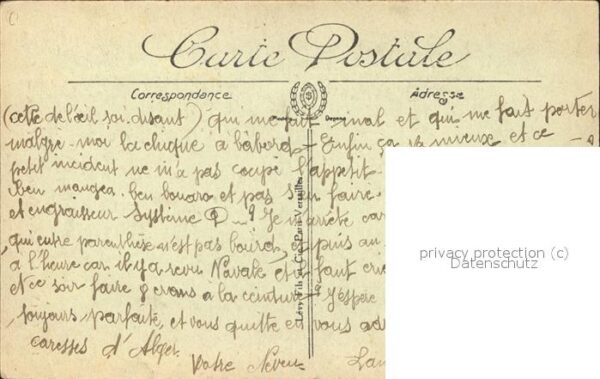 Carte Postale
Correspondance
Adresse
(cette de l'œil soi-disant) qui me fait mal et qui me fait porter
malgré-moi la chique à bâbord - Enfin ça va mieux et ce
petit incident ne m'a pas coupé l'appétit -
ben mangea, ben bouaro et pas s'en faire
et engraisseur Système D ...! Je m'arrête car
qui entre parenthèse n'est pas lourd, depuis au
à l'heure car il y a revu Navale et il faut
et ce soir faire crans à la ceinture J'espère
toujours parfaite, et vous quitte en vous
caresses d'Alger
Votre Neveu
Lévy Fils et Cie, Paris-Versailles
privacy protection (c)
Datenschutz